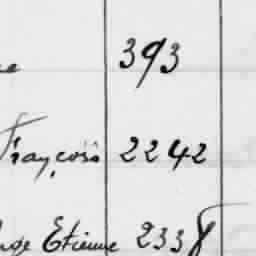 393
François 2242
Etienne 2338